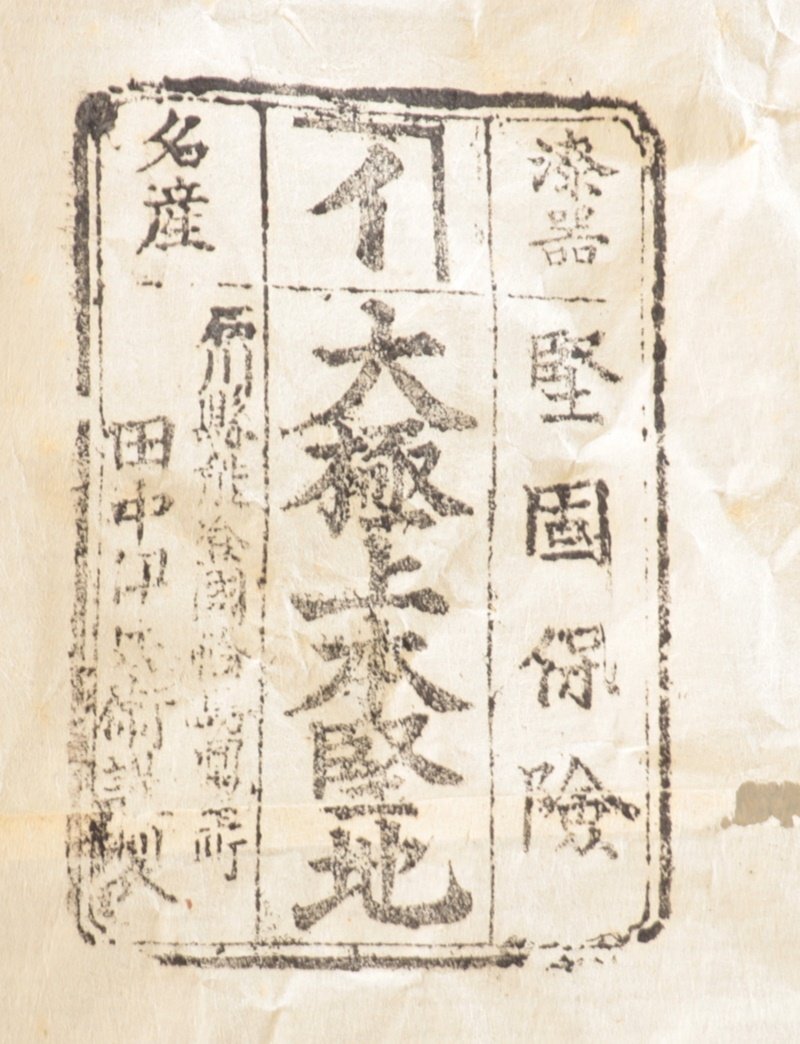 漆器
堅固保險
イ
大極上本堅地
名産
石川縣能登國輪島
田中